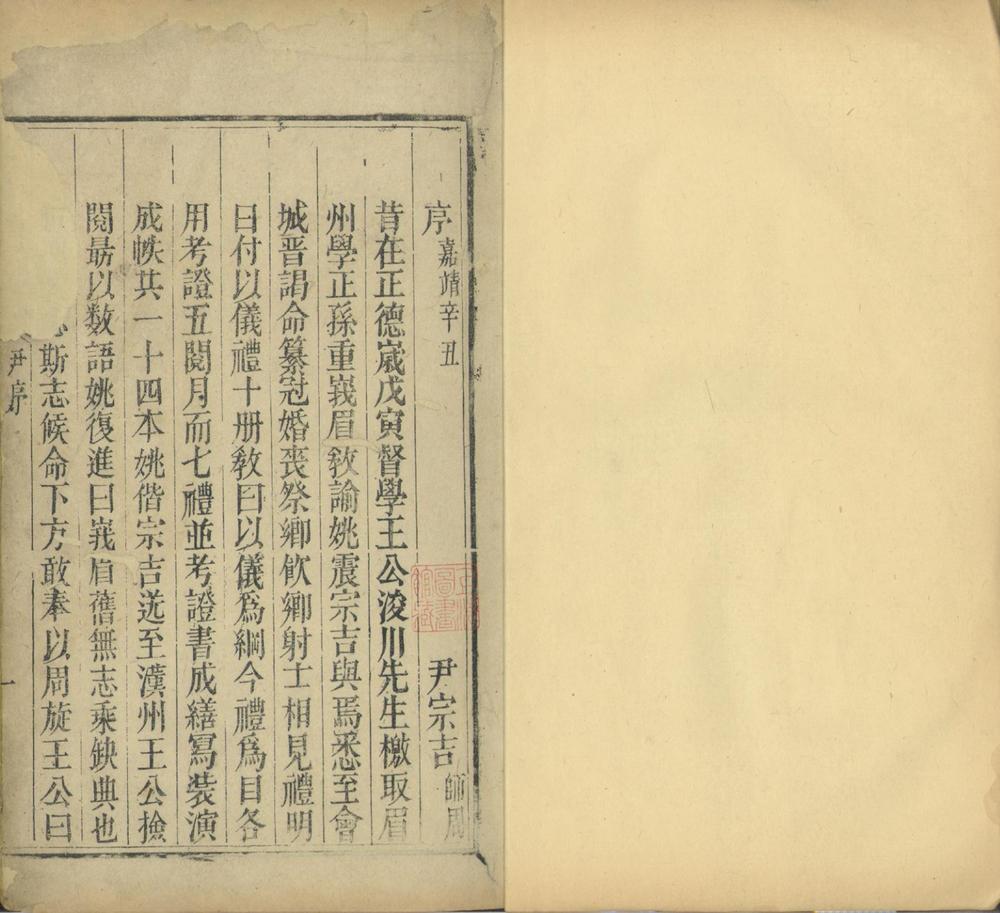 序嘉靖辛丑 尹宗吉師周
昔在正德歲戊寅督學王公浚川先生檄取眉
州學正孫重峩眉敎諭姚震宗吉與焉悉至會
城晋謁命纂冠婚丧祭鄉飲鄉射士相見禮明
日付以儀禮十册敎曰以儀爲綱今禮爲目各
用考證五閱月而七禮並考證書成繕寫装演
成帙共一十四本姚偕宗吉送至漢州王公撿
閱最以数語姚復進曰峩眉舊無志乘缺典也
斯志候命下方敢奉以周旋王公曰
尹序
一
圖書館藏